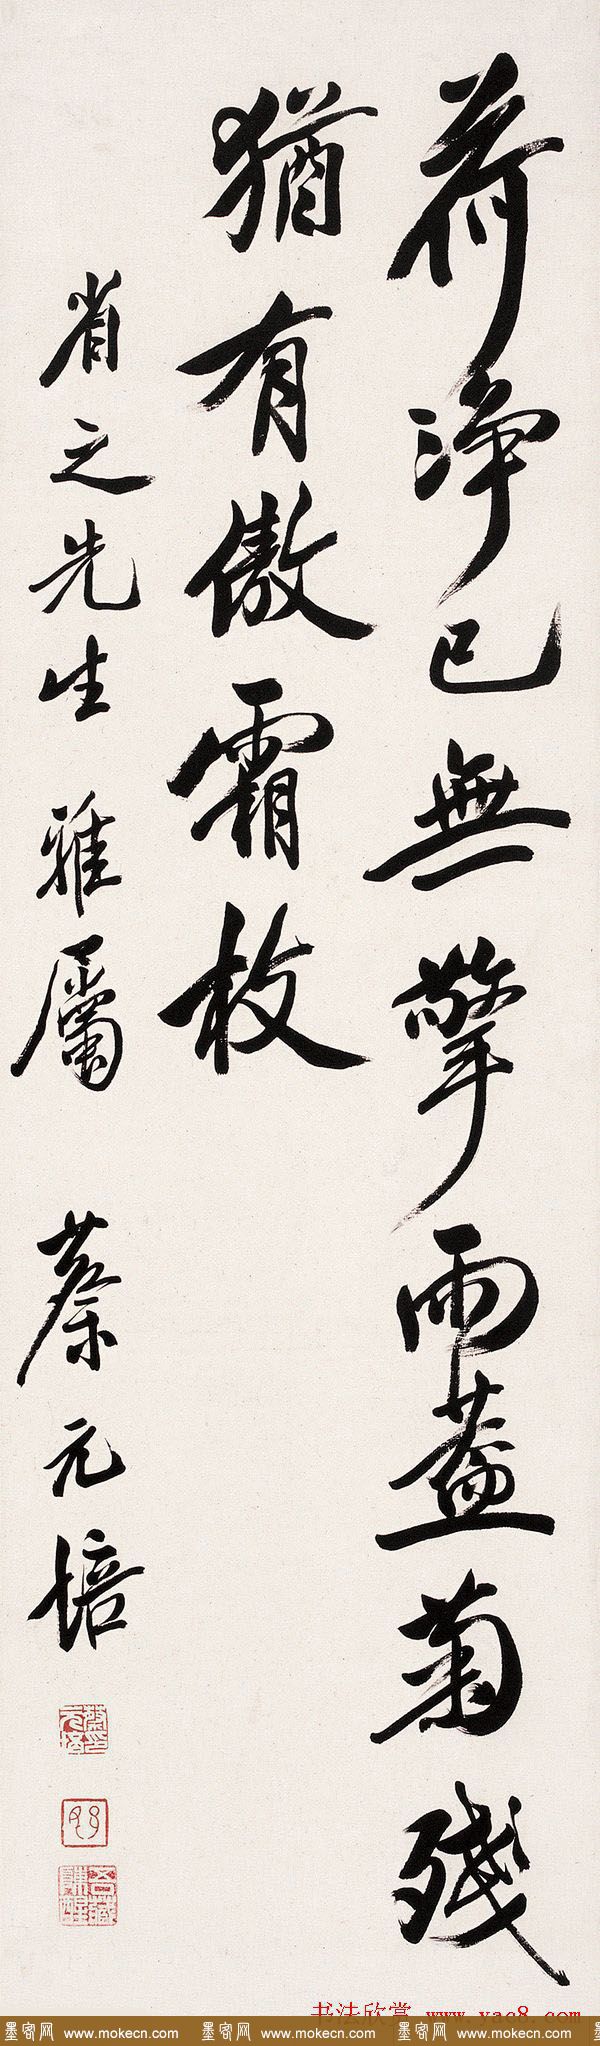 荷淨已無擎雨蓋菊殘
猶有傲霜枝
省之先生雅屬 蔡元培
书法欣赏 www.yac8.com
墨客网 www.mokecn.com 墨客网 www.mokecn.com 墨客网 www.mokecn.com